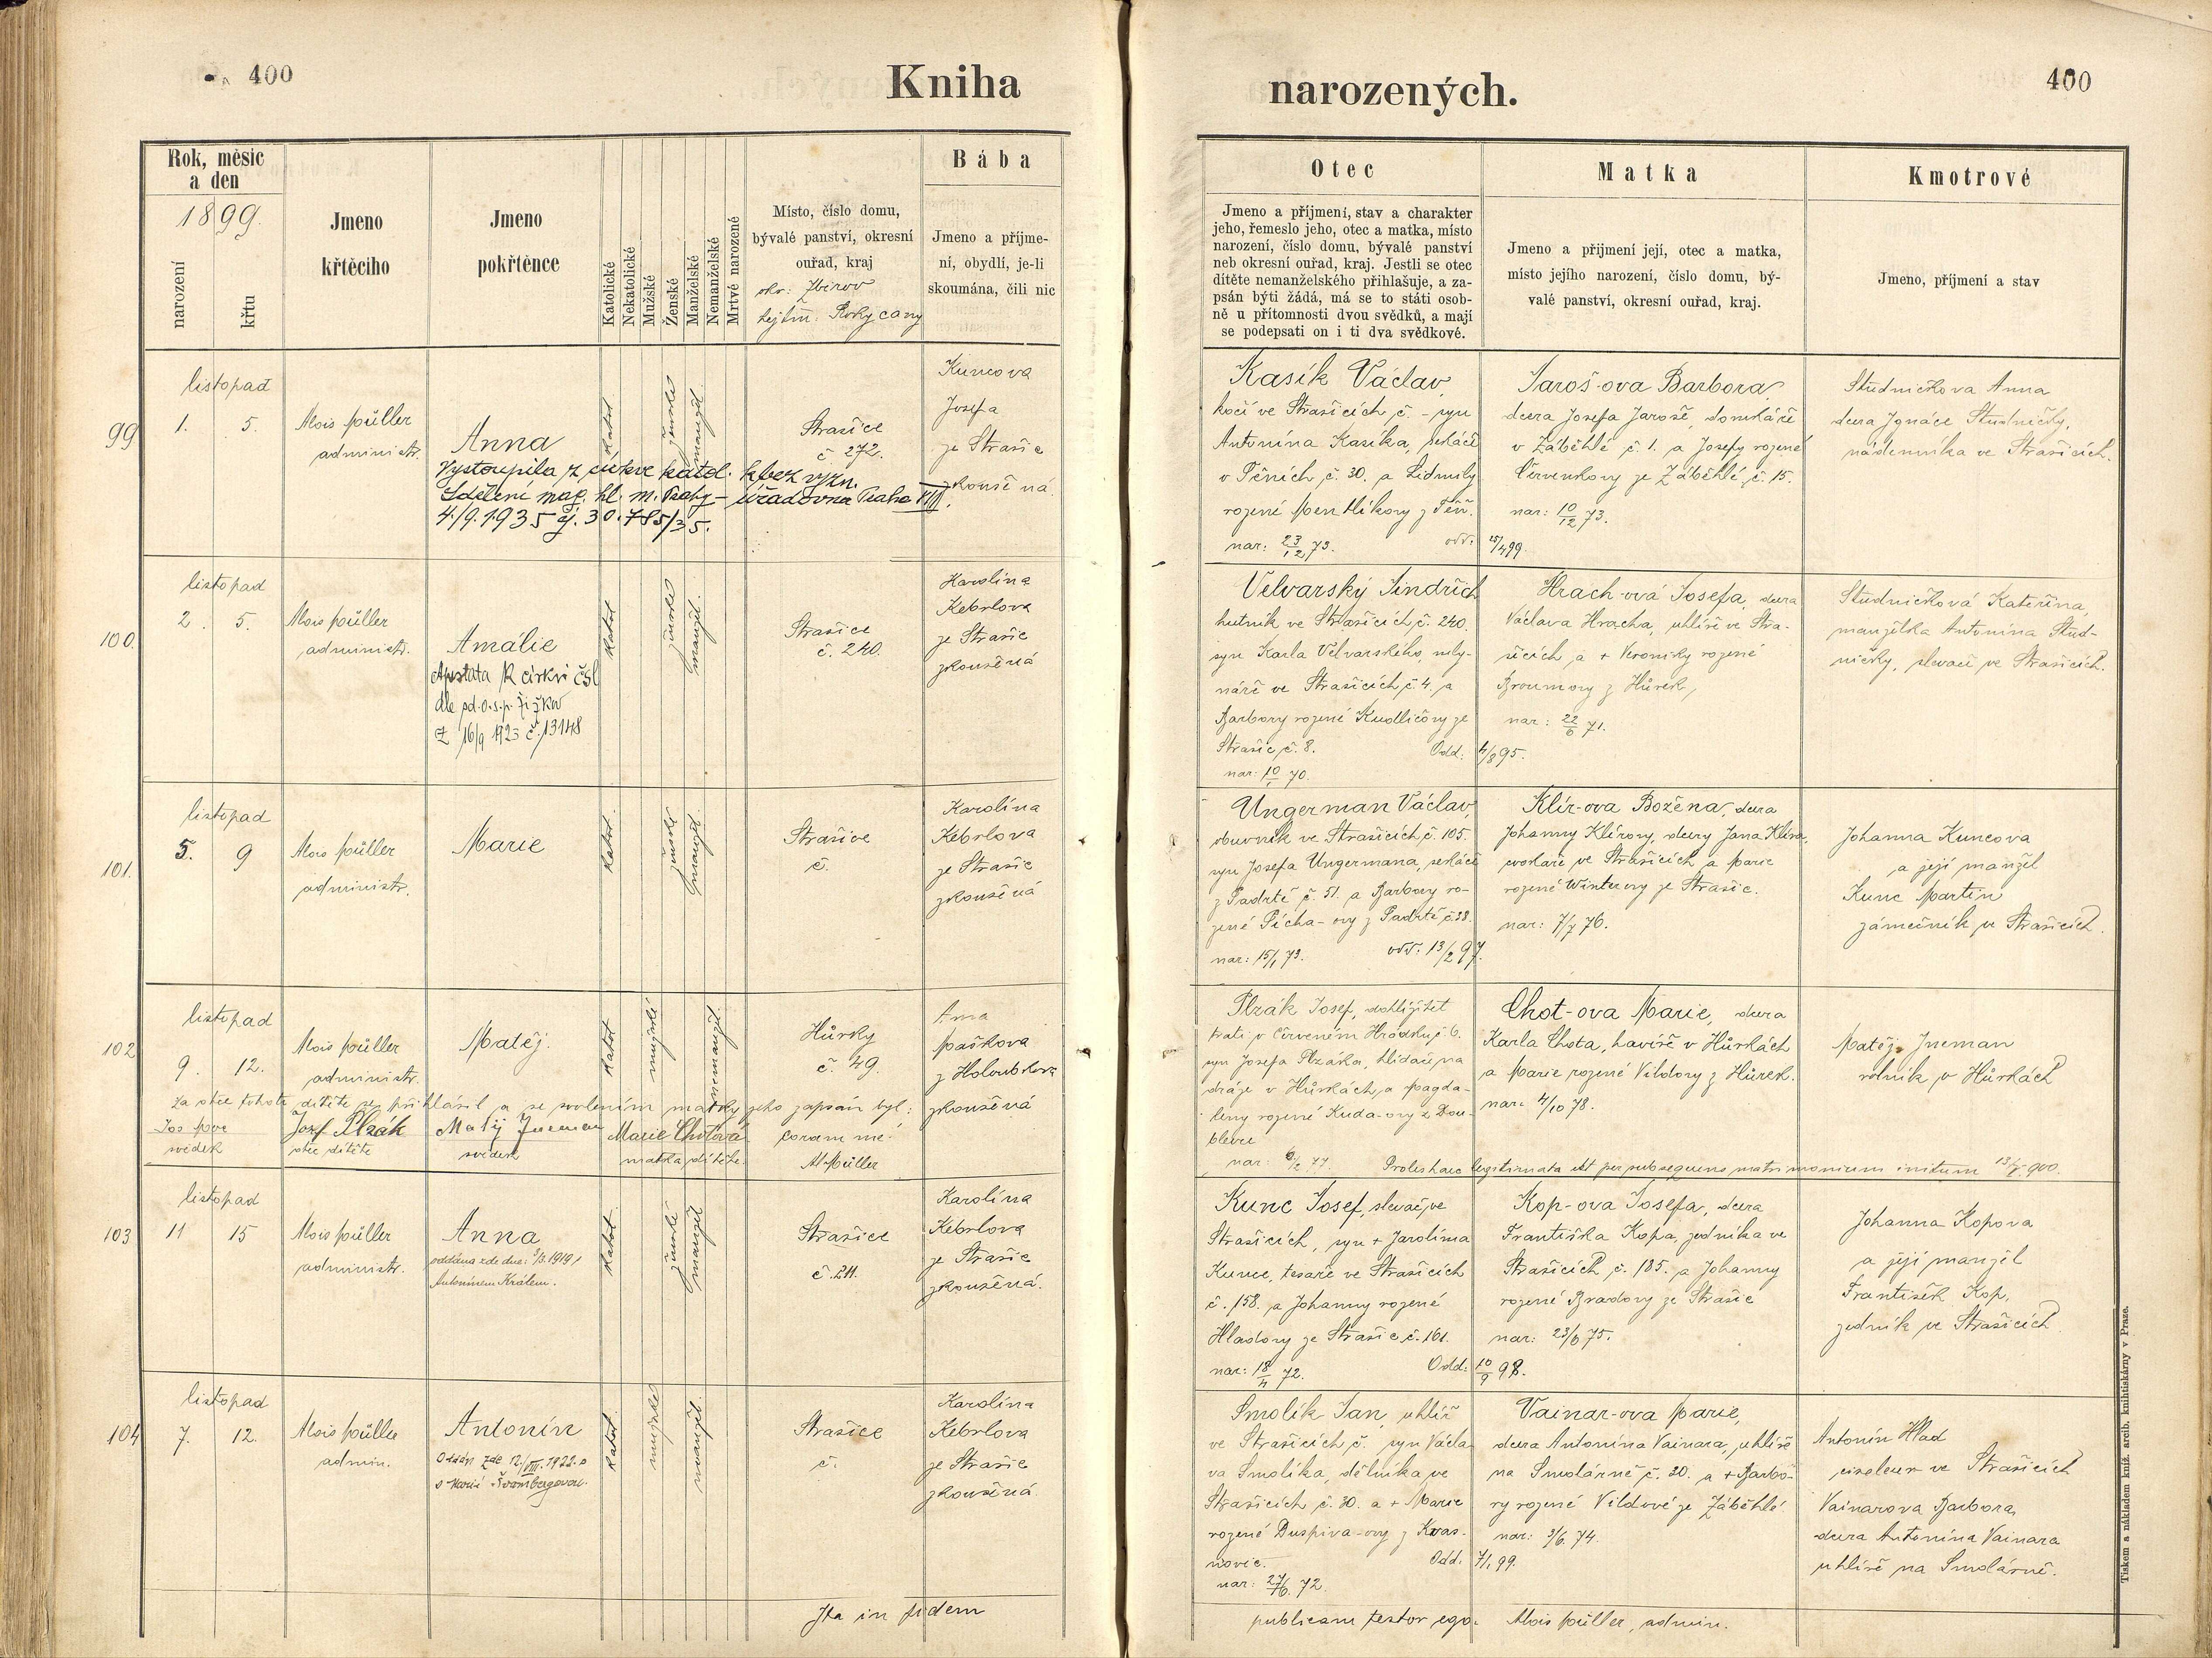 400
Kniha
narozených.
400
Rok, měsíc
a den
1899.
narození
křtu
Jmeno
křtěcího
Jmeno
pokřtěnce
Katolické
Nekatolické
Mužské
Ženské
Manželské
Nemanželské
Mrtvě narozené
Místo, číslo domu,
bývalé panství, okresní
ouřad, kraj
okr: Zbirov
hejtm: Rokycany
Bába
Jmeno a příjme-
ní, obydlí, je-li
skoumána, čili nic
Otec
Jmeno a příjmení, stav a charakter
jeho, řemeslo jeho, otec a matka, místo
narození, číslo domu, bývalé panství
neb okresní ouřad, kraj. Jestli se otec
dítěte nemanželského přihlašuje, a za-
psán býti žádá, má se to státi osob-
ně u přítomnosti dvou svědků, a mají
se podepsati on i ti dva svědkové.
Matka
Jmeno a přijmení její, otec a matka,
místo jejího narození, číslo domu, bý-
valé panství, okresní ouřad, kraj.
Kmotrové
Jmeno, příjmení a stav
99
listopad
1. 5.
Alois Müller
administr.
Anna
Vystoupila z církve katol. k bez vyzn.
Sdělení mag. hl. m. Prahy – úřadovna Praha VIII.
4./9.1935 čj. 30.785/35.
katol
ženské
manžel.
Strašice
č 272.
Kuncova
Josefa
ze Strašic
zkoušená.
Kasík Václav,
kočí ve Strašicích, č. – syn
Antonína Kasíka, sekáče
v Těních, č. 30. a Lidmily
rozené Mentlíkovy z Těň.
nar: 23/12 73.
odd: 25/4 99.
Jaroš-ova Barbora,
dcera Josefa Jaroše, domkáře
v Záběhlé č. 1. a Josefy rozené
Červenkovy ze Záběhlé, č. 15.
nar: 10/12 73.
Studničkova Anna
dcera Ignáce Studničky,
nádenníka ve Strašicích.
100.
listopad
2. 5.
Alois Müller
administr.
Amálie
Apostata k církvi čsl
dle sd. o.s.p. Žižkov
z 16/9 1923 č. 13148
katol
ženské
manžel.
Strašice
č. 240.
Karolína
Kebrlova
ze Strašic
zkoušená
Velvarský Jindřich
hutník ve Strašicích, č. 240.
syn Karla Velvarského, mly-
náře ve Strašicích, č. 4. a
Barbory rozené Kudličovy ze
Strašic, č. 8.
Odd: 4/8 95.
nar: 70.
Hrach-ová Josefa, dcera
Václava Hracha, uhlíře ve Stra-
šicích a + Veroniky rozené
Broumovy z Hůrek,
nar: 22/6 71.
Studničková Kateřina,
manželka Antonína Stud-
ničky, slevače ve Strašicích.
101.
listopad
5. 9
Alois Müller
administr.
Marie
katol.
ženské
manžel.
Strašice
č.
Karolína
Kebrlova
ze Strašic
zkoušená
Ungerman Václav,
obuvník ve Strašicích, č. 105.
syn Josefa Ungermana, sekáče
z Padrtě č. 51. a Barbory ro-
zené Pícha-ovy z Padrtě č. 38.
nar: 15/1 73.
odd: 13/2 97.
Klír-ova Božena, dcera
Johanny Klírovy, dcery Jana Klíra,
cvokaře ve Strašicích a Marie
rozené Winterovy ze Strašic.
nar: 7/7 76.
Johanna Kuncova
a její manžel
Kunc Martin
zámečník ve Strašicích.
102
listopad
9. 12.
Alois Müller
administr.
Matěj.
katol
mužské
nemanžel.
Hůrky
č. 49.
Anna
Paškova
z Holoubkova
zkoušená
Za otce tohoto dítěte se přihlásil a se svolením matky jeho zapsán byl:
svědek
Josef Plzák
otec dítěte
Matěj Ineman
svědek
Marie Chotová
matka dítěte.
Coram me:
Al. Müller
Plzák Josef, dohlížitel
trati v Červeném Hrádku, č. 6.
syn Josefa Plzáka, hlídače na
dráze v Hůrkách, a Magda-
leny rozené Kuda-ovy z Dou-
blevec
nar: 77.
Proles haec legitimata est per subsequens matrimonium initum 900.
Chot-ova Marie, dcera
Karla Chota, havíře v Hůrkách
a Marie rozené Vildovy z Hůrek.
nar: 4/10 78.
Matěj Ineman
rolník v Hůrkách
103
listopad
11 15
Alois Müller
administr.
Anna
oddána zde dne: 1919 s
Antonínem Králem.
katol.
ženské
manžel
Strašice
č. 211.
Karolína
Kebrlova
ze Strašic
zkoušená.
Kunc Josef, slevač, ve
Strašicích, syn + Jarolíma
Kunce, tesaře ve Strašicích
č. 158. a Johanny rozené
Hladovy ze Strašic, č. 161.
nar: 18/4 72.
Odd: 10/9 98.
Kop-ova Josefa, dcera
Františka Kopa, zedníka ve
Strašicích č. 185. a Johanny
rozené Bradovy ze Strašic
nar: 23/6 75.
Johanna Kopova
a její manžel
František Kop,
zedník ve Strašicích
104
listopad
7. 12.
Alois Müller
admin.
Antonín
Oddán zde 12/VIII. 1922
s Marií Švambergovou.
katol.
mužské
manžel.
Strašice
č.
Karolína
Kebrlova
ze Strašic
zkoušená
Smolík Jan, uhlíř
ve Strašicích, č. syn Václa-
va Smolíka, dělníka ve
Strašicích č. 30. a + Marie
rozené Duspiva-ovy z Kvas-
ňovic.
Odd. 7/1 99.
nar: 27/6. 72.
Vainar-ova Marie,
dcera Antonína Vainara, uhlíře
na Smolárně č. 20. a + Barbo-
ry rozené Vildové ze Záběhlé
nar: 3/6. 74.
Antonín Hlad
ciseleur ve Strašicích
Vainarova Barbora,
dcera Antonína Vainara
uhlíře na Smolárně.
Ita in fidem
publicam testor ego:
Alois Müller, admin.
Tiskem a nákladem kníž. arcib. knihtiskárny v Praze.